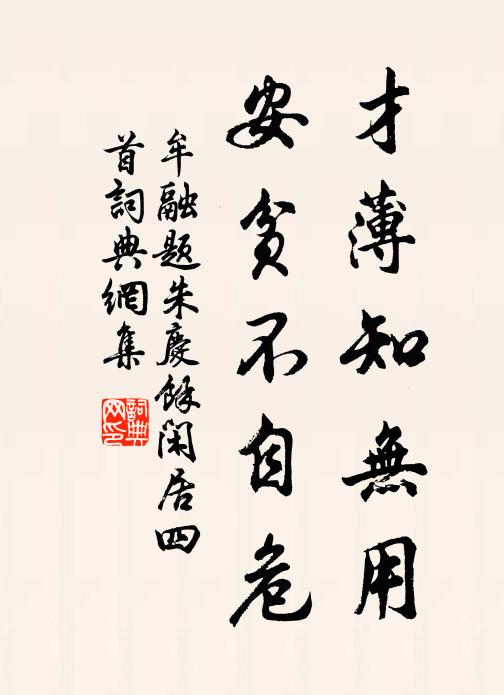 才薄知無用
安貧不自危
牟融題朱慶餘閑居四
首詞典網集
詞典
網印